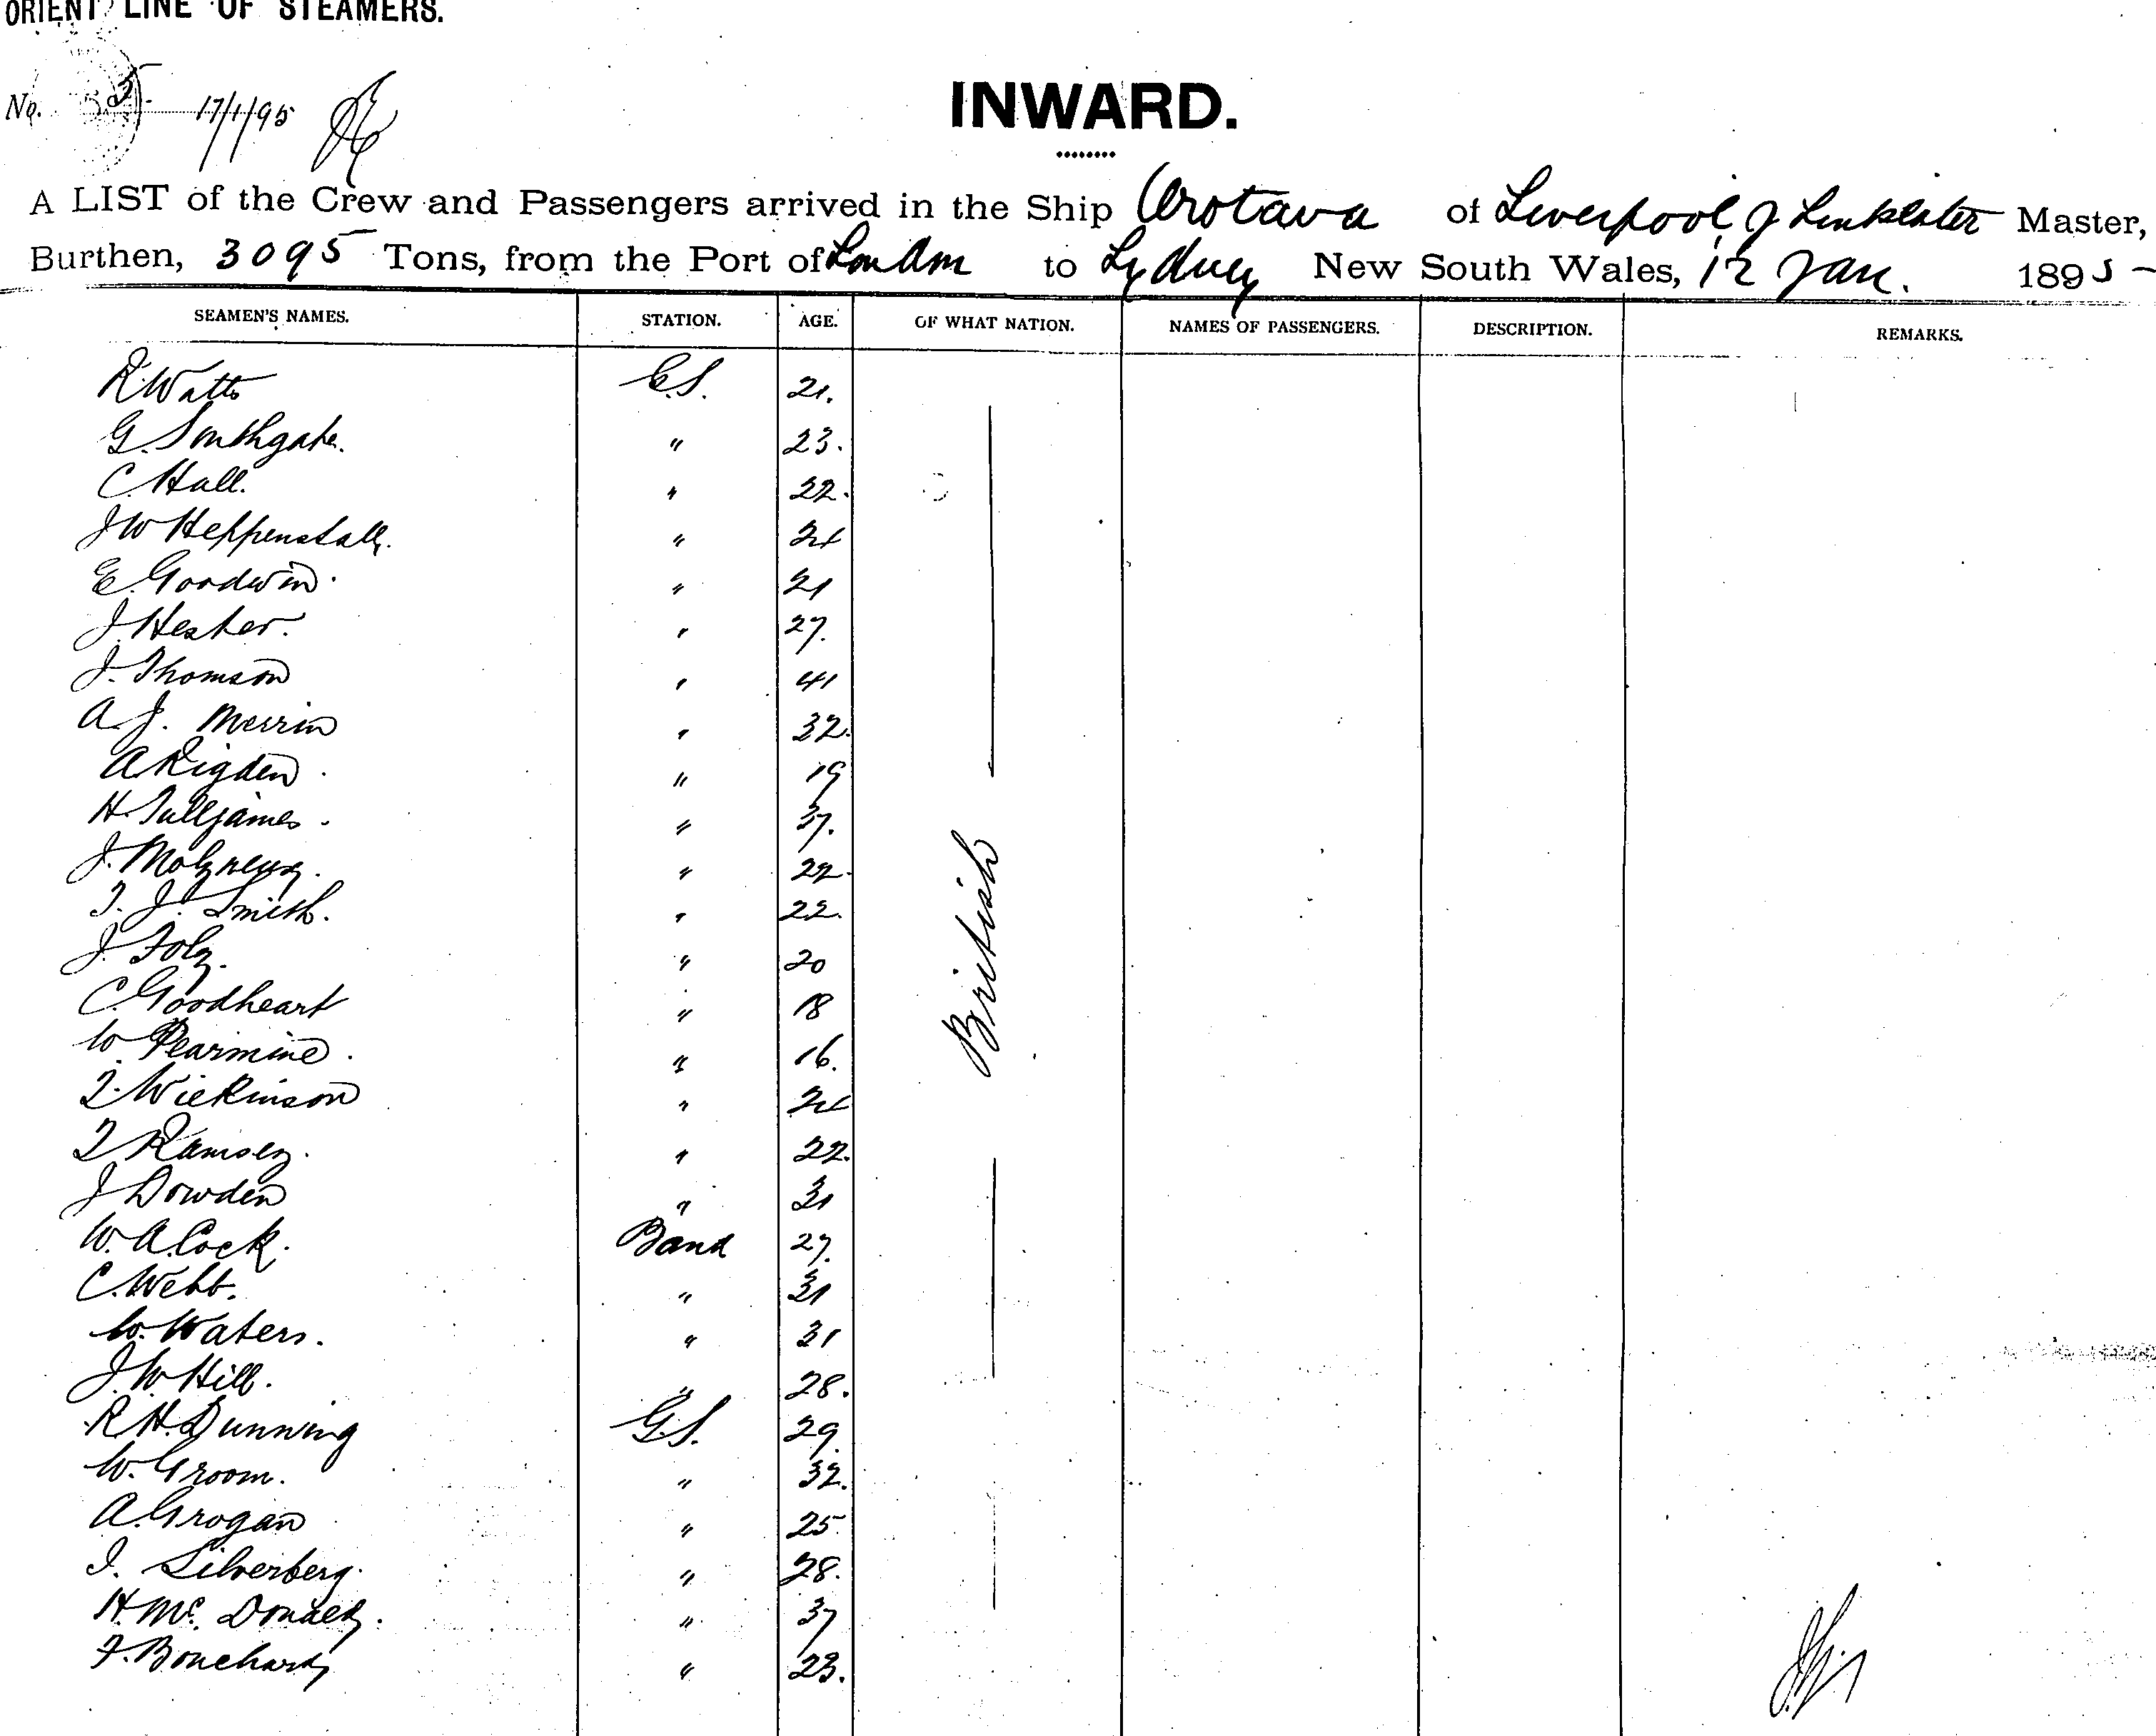 ORIENT LINE OF STEAMERS.
No. 17/1/95
INWARD.
A LIST of the Crew and Passengers arrived in the Ship Orotava of Liverpool J Linklater Master,
Burthen, 3095 Tons, from the Port of London to Sydney New South Wales, 12 Jan. 1895
SEAMEN'S NAMES. STATION. AGE. OF WHAT NATION. NAMES OF PASSENGERS. DESCRIPTION. REMARKS.
R Watts 21.
G. Southgate. " 23.
C. Hall. " 22.
J W Heppenstall. " 24
E. Goodwin. " 21
J. Hester. " 27.
J. Thomson " 41
A. J. Merrin " 32.
A Rigden. " 19
H. Tulljames. " 37.
J. Molyneux. " 22.
T. J. Smith. " 22.
J. Foly. " 20
C. Goodheart " 18
W. Pearmine. " 16.
T. Wilkinson " 24
T Ramsey. " 22.
J Dowden " 31
W. A. Cock. Band 27.
C. Webb. " 31
W. Waters. " 31
J. W Hill. " 28.
R H. Dunning G.S. 29.
W. Groom. " 32.
A. Grogan " 25
I. Silverberg. " 28.
H. Mc. Donald. " 37
F. Bouchard " 23.
British